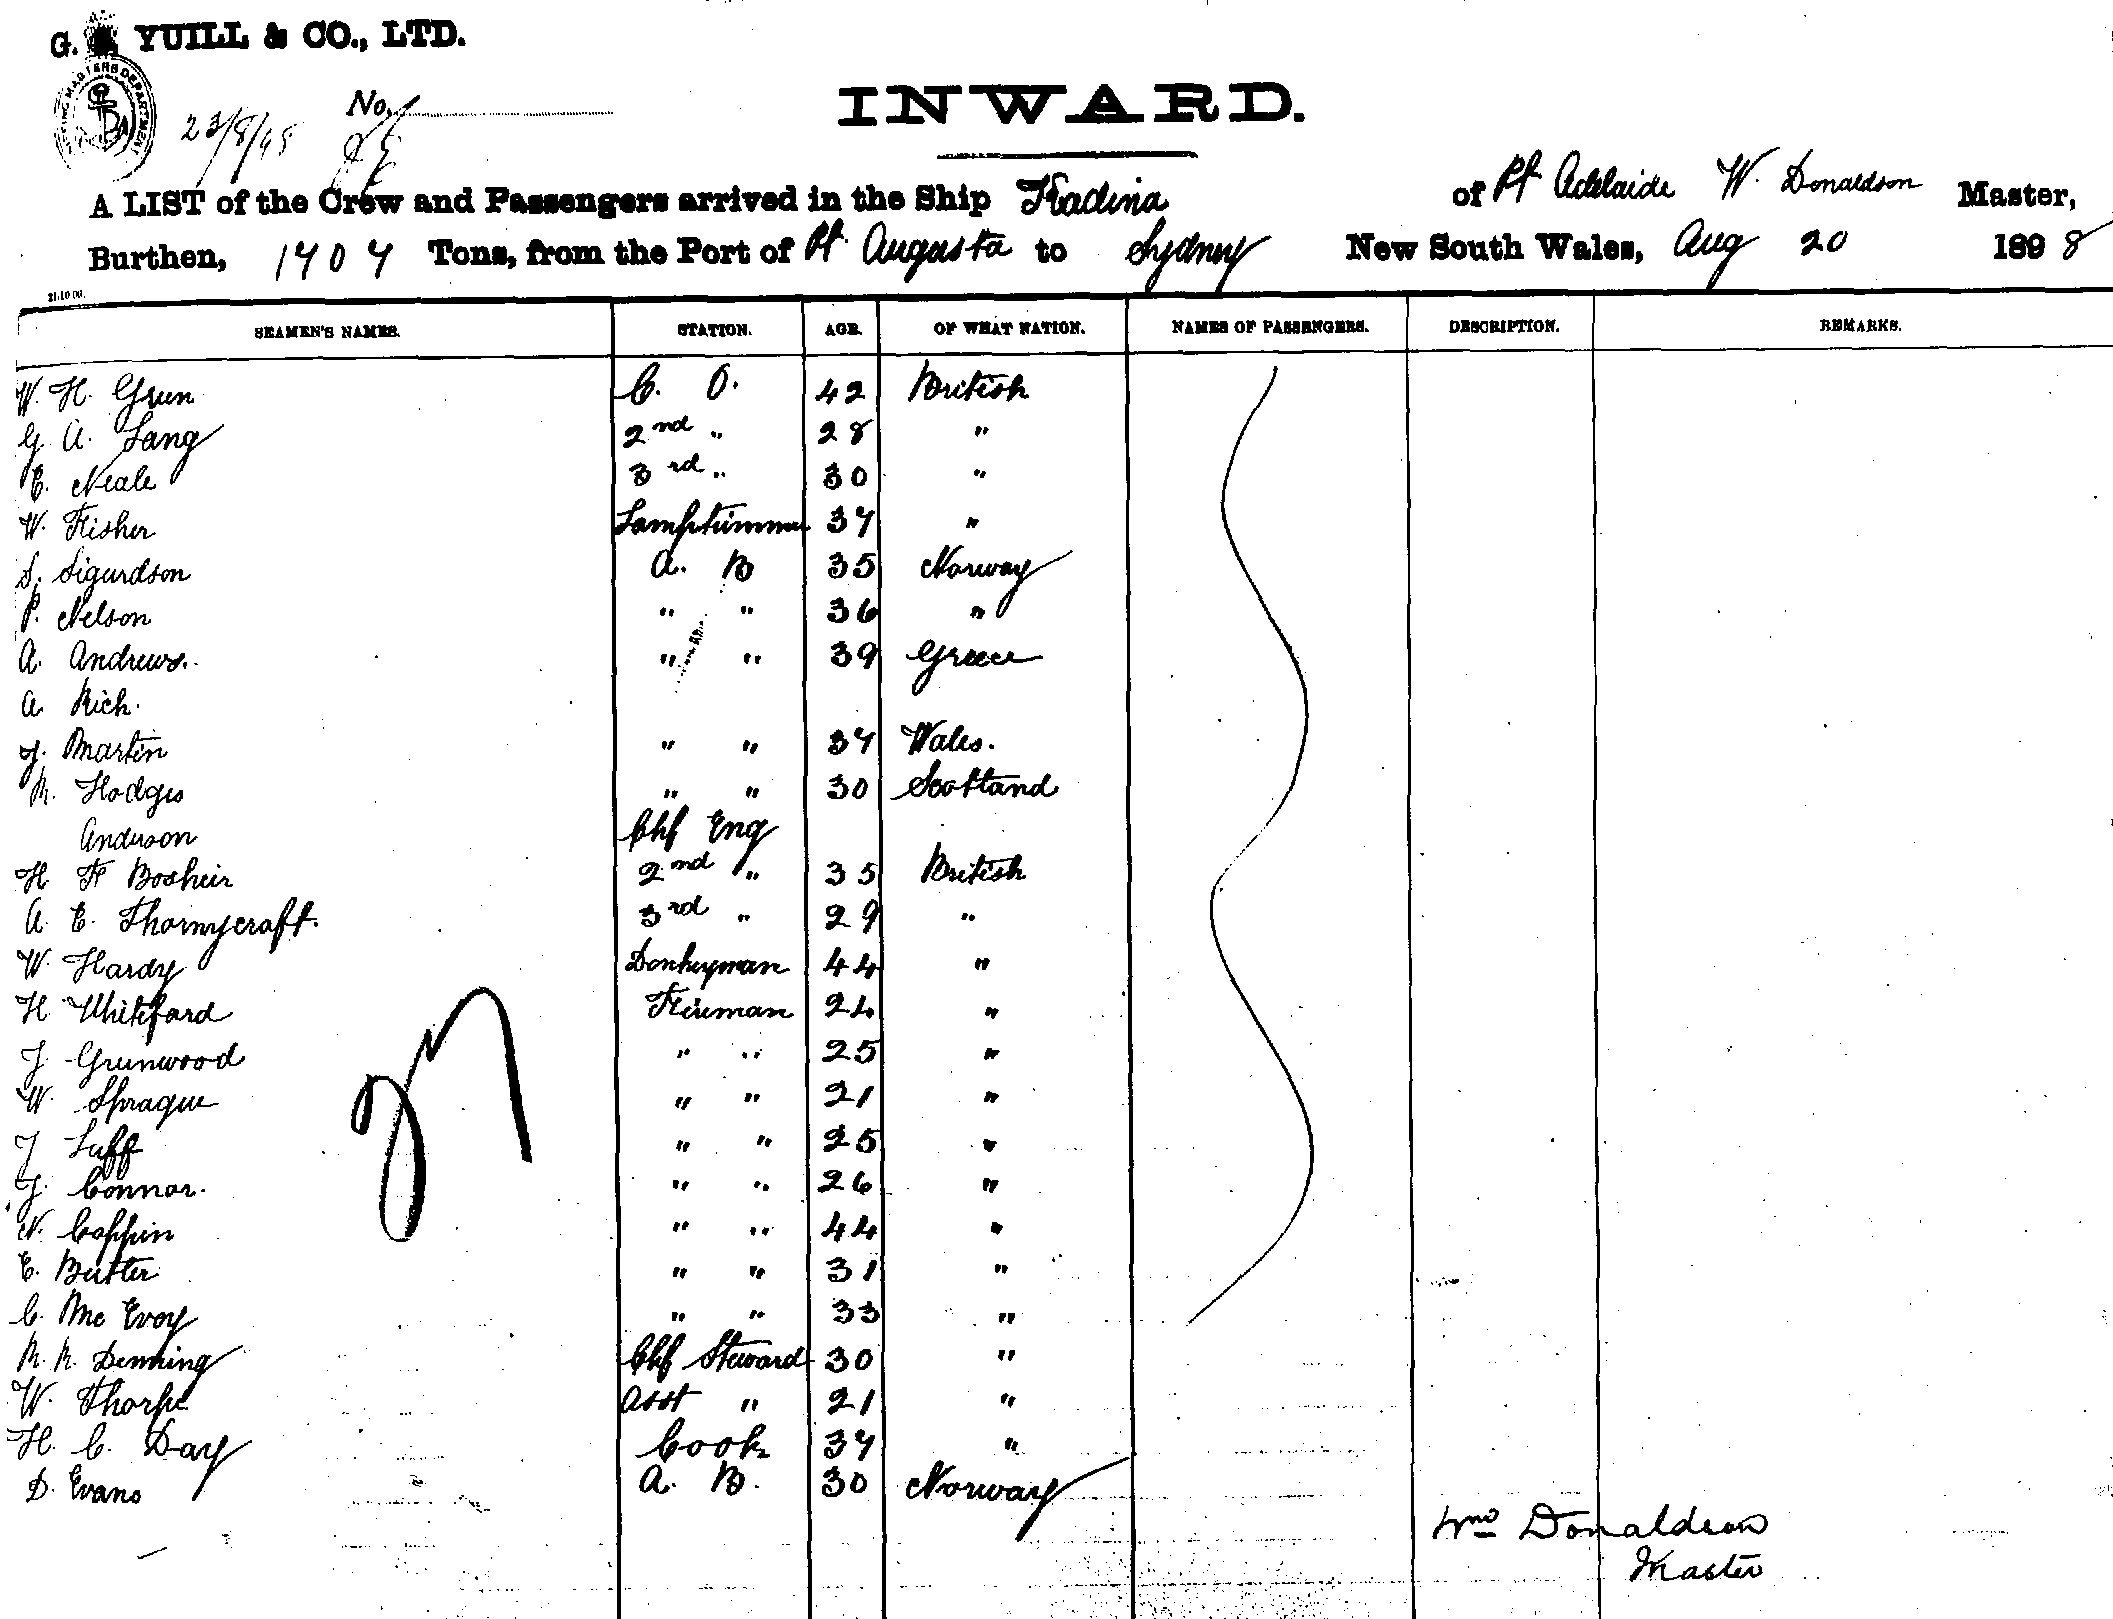 G. YUILL & CO., LTD.
SHIPPING MASTERS DEPARTMENT
23/8/98 No.
INWARD.
A LIST of the Crew and Passengers arrived in the Ship Kadina of Pt Adelaide W. Donaldson Master,
Burthen, 1404 Tons, from the Port of Pt Augusta to Sydney New South Wales, Aug 20 1898
SEAMEN'S NAMES. STATION. AGE. OF WHAT NATION. NAMES OF PASSENGERS. DESCRIPTION. REMARKS.
W. H. Green C. O. 42 British
G A. Lang 2nd " 28 "
E. Neale 3rd " 30 "
W. Fisher Lamptrimmer 37 "
S. Sigurdson A. B 35 Norway
P. Nelson " " 36 "
A. Andrews. " " 39 Greece
A Rich.
J. Martin " " 37 Wales.
R. Hodges " " 30 Scotland
Anderson Chf Eng
H F Bosheir 2nd " 35 British
A. E. Thornycraft. 3rd " 29 "
W. Hardy Donkeyman 44 "
H. Whiteford Fireman 24 "
J. Greenwood " " 25 "
W. Sprague " " 21 "
J Luff " " 25 "
J. Connor. " " 26 "
N. Coppin " " 44 "
E. Butter " " 31 "
C. Mc Evoy " " 33 "
R. R. Denning Chf Steward 30 "
W. Thorpe Asst " 21 "
H. C. Day Cook 37 "
D. Evans A. B. 30 Norway
Wm Donaldson
Master